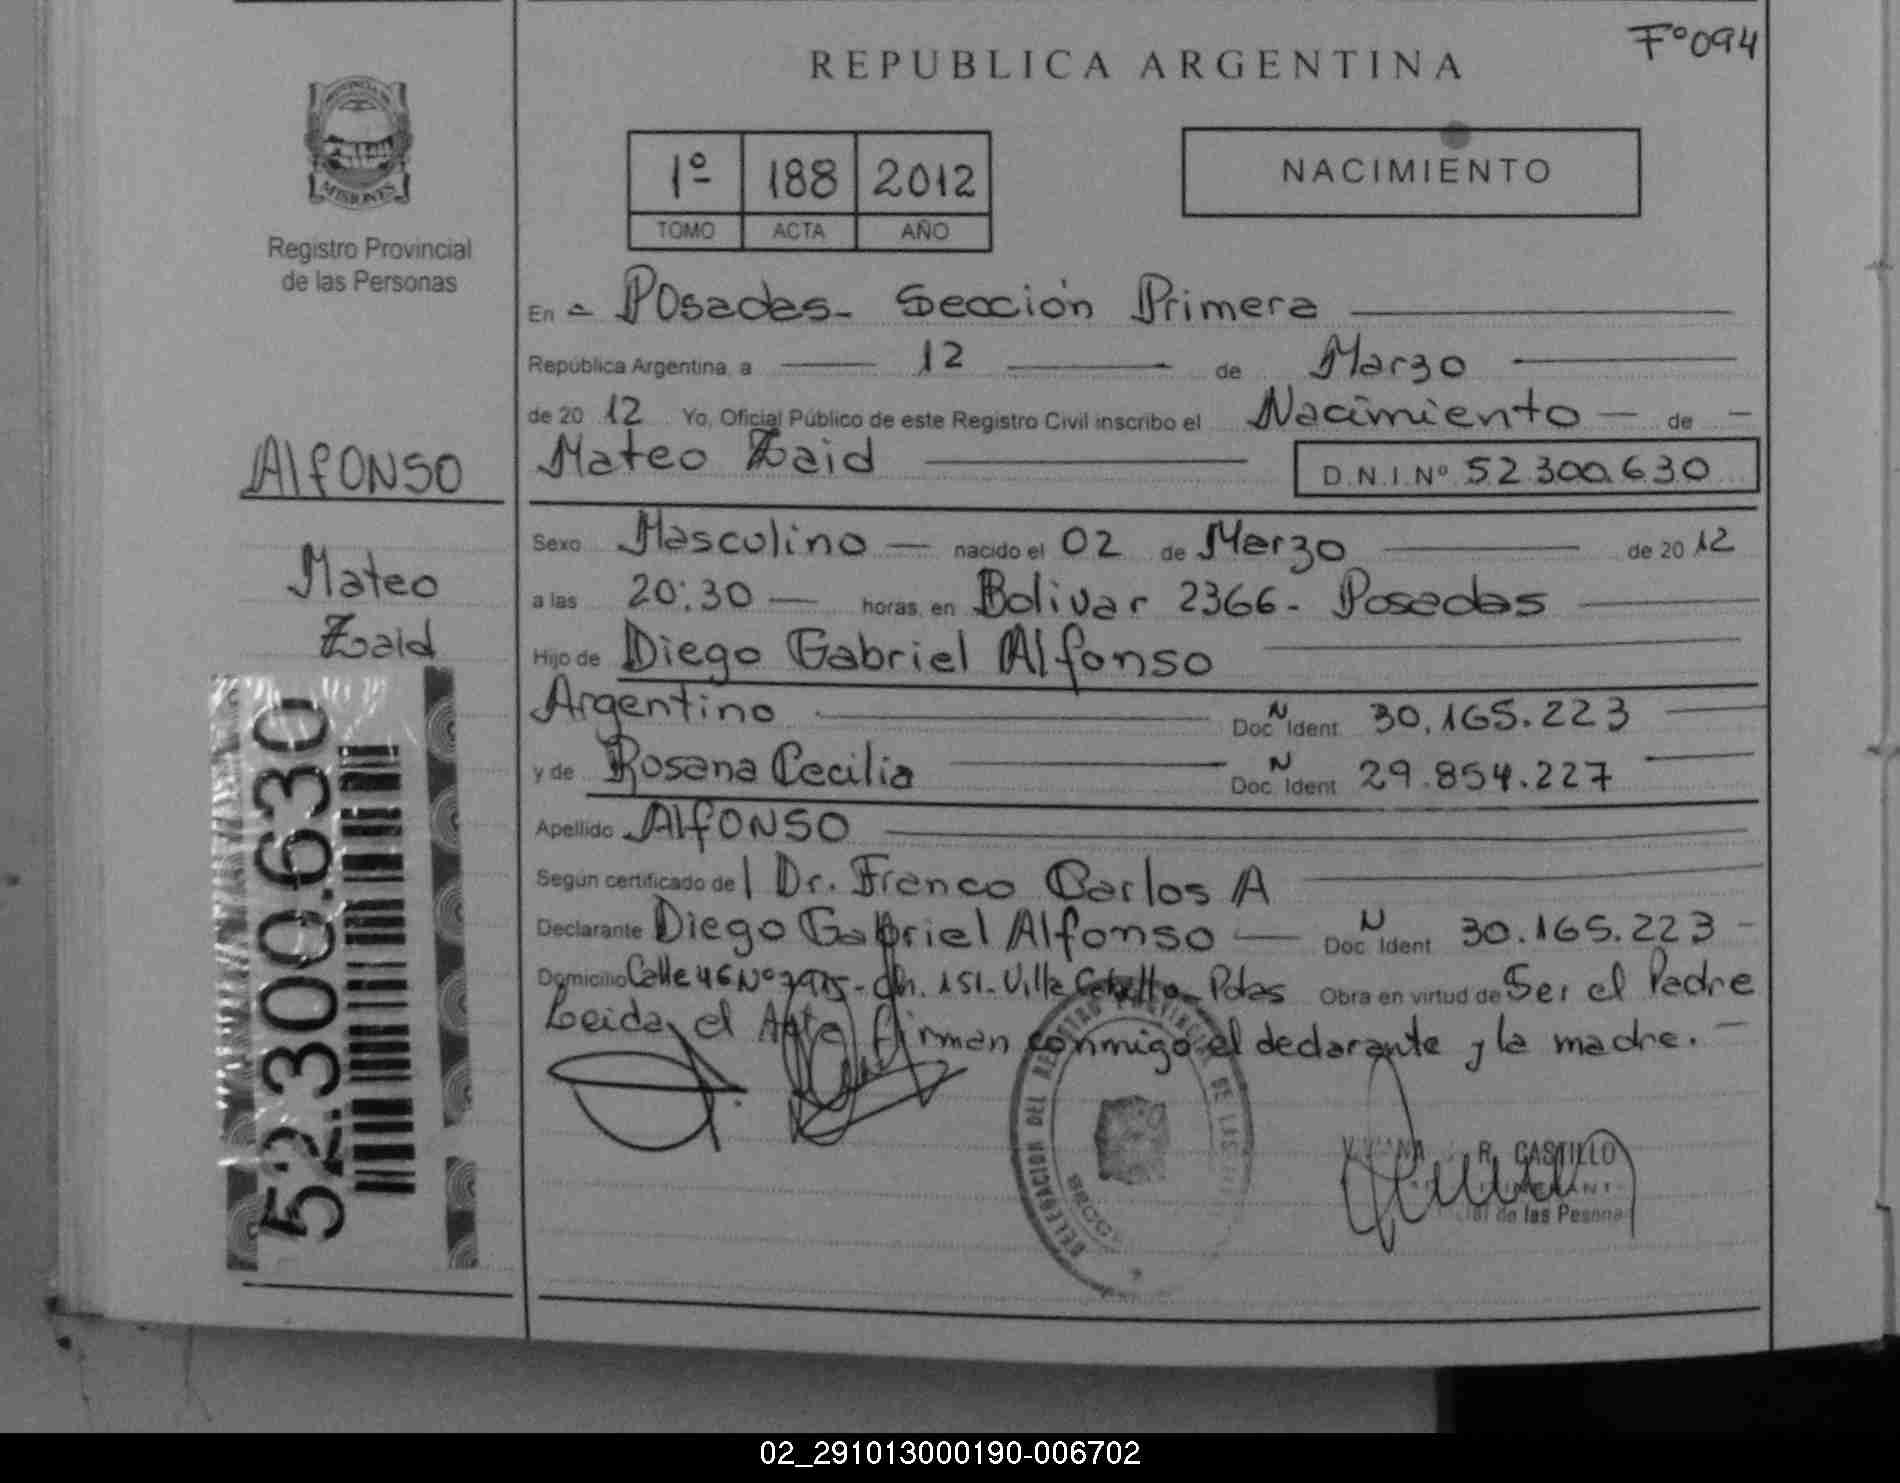 Fº094
REPUBLICA ARGENTINA
MISIONES
Registro Provincial
de las Personas
1º 188 2012
TOMO ACTA AÑO
NACIMIENTO
En a Posadas- Sección Primera
República Argentina, a 12 de Marzo
de 20 12 Yo, Oficial Público de este Registro Civil inscribo el Nacimiento de
Mateo Zaid D.N.I.Nº 52.300.630
Alfonso
Mateo
Zaid
52.300.630
Sexo Masculino nacido el 02 de Marzo de 20 12
a las 20:30 horas, en Bolivar 2366- Posadas
Hijo de Diego Gabriel Alfonso
Argentino N Doc. Ident. 30.165.223
y de Rosana Cecilia N Doc. Ident. 29.854.227
Apellido Alfonso
Según certificado del Dr. Franco Carlos A
Declarante Diego Gabriel Alfonso N Doc. Ident. 30.165.223
Domicilio Calle 46 Nº - Ch. 151- Villa Pdas Obra en virtud de Ser el Padre
Leida el Acta firman conmigo el declarante y la madre.
DELEGACION DEL REGISTRO PROVINCIAL DE LAS
R. CASTILLO
de las Pesona
02_291013000190-006702